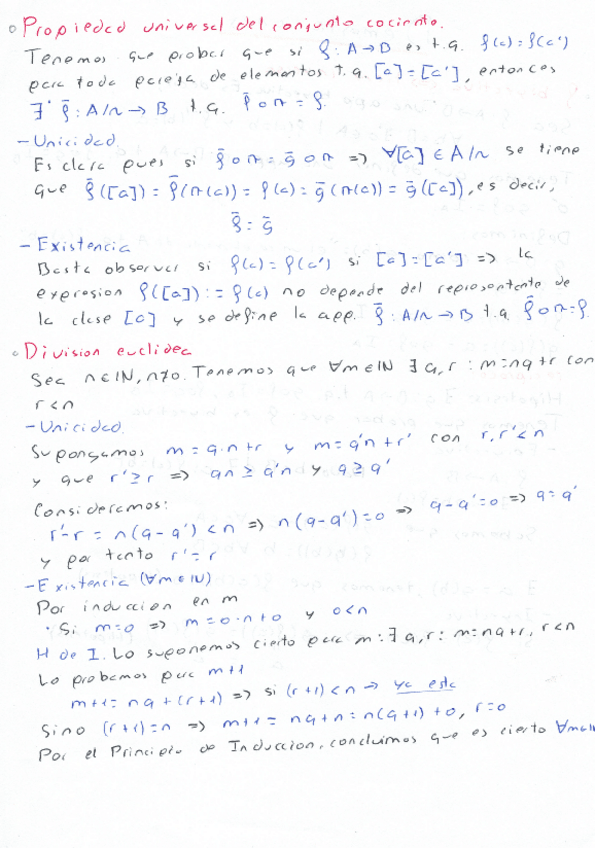 Propiedad universal del conjunto cociente.
Tenemos que probar que si f: A→B es t.q. f(a)=f(a')
para toda pareja de elementos t.q. [a]=[a'], entonces
∃· f̄: A/~ → B t.q. f̄∘π=f.
-Unicidad
Es claro pues si f̄∘π=ḡ∘π ⇒ ∀[a]∈A/~ se tiene
que f̄([a])=f̄(π(a))=f(a)=ḡ(π(a))=ḡ([a]), es decir,
f̄=ḡ
-Existencia
Basta observar si f(a)=f(a') si [a]=[a'] ⇒ la
expresion f([a]):=f(a) no depende del representante de
la clase [a] y se define la app. f̄: A/~→B t.q. f̄∘π=f.
Division euclidea
Sea n∈IN, n≠0. Tenemos que ∀m∈IN ∃ q,r : m=nq+r con
r<n
-Unicidad.
Supongamos m=q·n+r y m=q'n+r' con r,r'<n
y que r'≥r ⇒ qn≥q'n y q≥q'
Consideremos:
r'-r=n(q-q')<n ⇒ n(q-q')=0 ⇒ q-q'=0 ⇒ q=q'
y por tanto r'=r
-Existencia (∀m∈IN)
Por induccion en m
· Si m=0 ⇒ m=0·n+0 y 0<n
H de I. Lo suponemos cierto para m: ∃ q,r: m=nq+r, r<n
Lo probamos para m+1
m+1=nq+(r+1) ⇒ si (r+1)<n → ya esta
Sino (r+1)=n ⇒ m+1=nq+n=n(q+1)+0, r=0
Por el Principio de Induccion, concluimos que es cierto ∀m∈IN